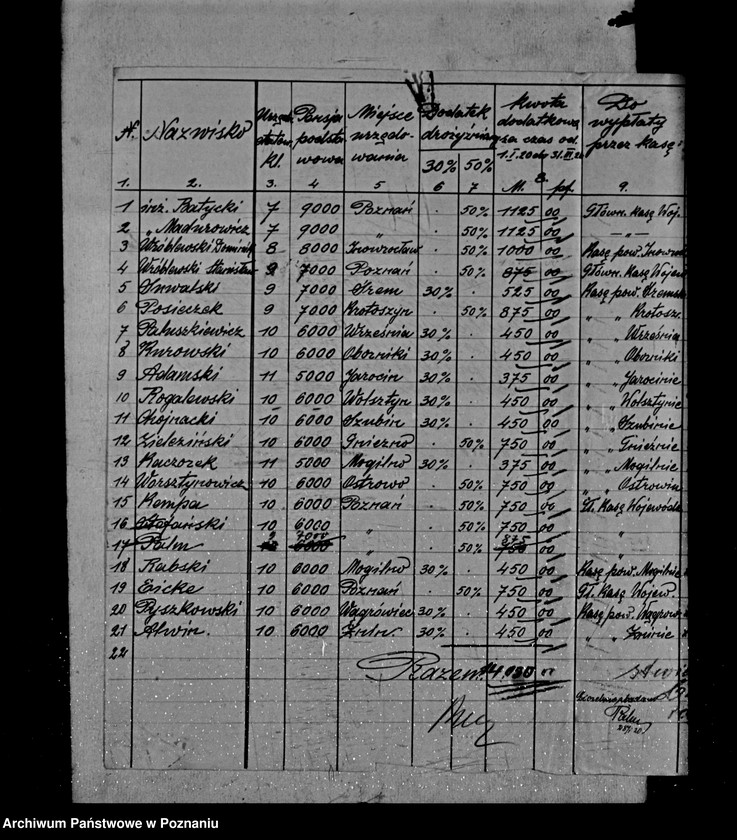 N. Nazwisko Pensja podsta- wowa Miejsce urzędo- wania Dodatek drożyźniany Kwota dodatkowa za czas od 1.I.20 do 31.III.20 Do wypłaty przez kasę
kl. 30% 50% M. pf.
1. 2. 3. 4 5 6 7 8 9.
1 inż. Batycki 7 9000 Poznań . 50% 1125 00 Główn. Kasę Woj.
2 " Madurowicz 7 9000 " . 50% 1125 00 — " —
3 Wróblewski Dominik 8 8000 Inowrocław . 50% 1000 00 Kasę pow. Inowr
4 Wróblewski Stanisław 9 7000 Poznań . 50% 875 00 Główn. Kasę Wojew
5 Suwalski 9 7000 Szrem 30% . 525 00 Kasę pow. Szremsk
6 Posieczek 9 7000 Krotoszyn . 50% 875 00 " " Krotosz.
7 Paluszkiewicz 10 6000 Września 30% . 450 00 " " Wrześni
8 Kurowski 10 6000 Oborniki 30% . 450 00 " " Oborniki
9 Adamski 11 5000 Jarocin 30% . 375 00 " " Jarocinie
10 Rogalewski 10 6000 Wolsztyn 30% . 450 00 " " Wolsztynie
11 Chojnacki 10 6000 Szubin 30% . 450 00 " " Szubinie
12 Zieleziński 10 6000 Gniezno . 50% 750 00 " " Gnieźnie
13 Kaczorek 11 5000 Mogilno 30% . 375 00 " " Mogilnie
14 Warsztynowicz 10 6000 Ostrowo . 50% 750 00 " " Ostrowiu
15 Kempa 10 6000 Poznań . 50% 750 00 Gł. Kasę Wojewódz
16 Stefański 10 6000 " . 50% 750 00 "
9 7000 875
17 Palm 10 6000 " . 50% 750 00 "
18 Rabski 10 6000 Mogilno 30% . 450 00 Kasę pow. Mogilnie
19 Eicke 10 6000 Poznań . 50% 750 00 Gł. Kasę Wojew.
20 Pyszkowski 10 6000 Wągrowiec 30% . 450 00 Kasę pow. Wągrow
21 Alwin. 10 6000 Żnin 30% . 450 00 " " Żninie
22
Razem 14 030
Palm
Archiwum Państwowe w Poznaniu